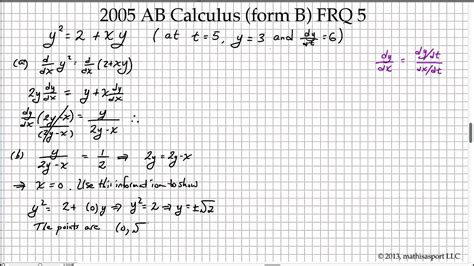 2005 AB Calculus (form B) FRQ 5
y² = 2 + xy ( at t = 5, y = 3 and dy/dt = 6)
dy/dx = (dy/dt)/(dx/dt)
(a) d/dx y² = d/dx (2+xy)
2y dy/dx = y + x dy/dx
dy/dx (2y-x)/(2y-x) = y/(2y-x) ∴
(b) y/(2y-x) = 1/2 ⇒ 2y = 2y-x
⇒ x = 0. Use this information to show
y² = 2 + (0)y ⇒ y² = 2 ⇒ y = ±√2
The points are (0, √
© 2013, mathisasport LLC